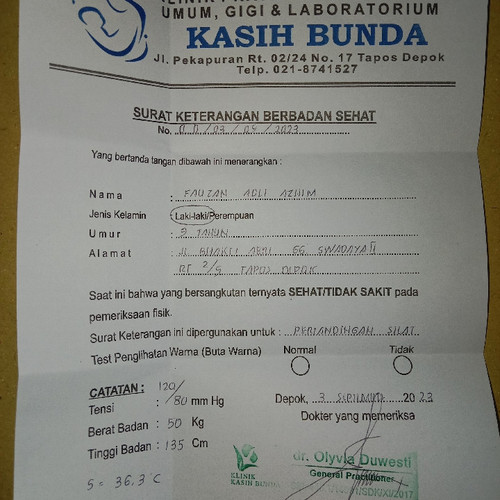 UMUM, GIGI & LABORATORIUM
KASIH BUNDA
Jl. Pekapuran Rt. 02/24 No. 17 Tapos Depok
Telp. 021-8741527
SURAT KETERANGAN BERBADAN SEHAT
No. /03/09/2023
Yang bertanda tangan dibawah ini menerangkan :
Nama : FAUZAN ADLI AZHIM
Jenis Kelamin : Laki-laki/Perempuan
Umur : TAHUN
Alamat : Jl BHAKTI ABRI GG SWADAYA II
RT 2/9 TAPOS DEPOK
Saat ini bahwa yang bersangkutan ternyata SEHAT/TIDAK SAKIT pada
pemeriksaan fisik.
Surat Keterangan ini dipergunakan untuk : PERTANDINGAN SILAT
Test Penglihatan Warna (Buta Warna) Normal Tidak
CATATAN :
Tensi : 120/80 mm Hg
Berat Badan : 50 Kg
Tinggi Badan : 135 Cm
S = 36,3°C
Depok, 3 SEPTEMBER 2023
Dokter yang memeriksa
KLINIK
KASIH BUNDA
dr. Olyvia Duwesti
General Practitioner